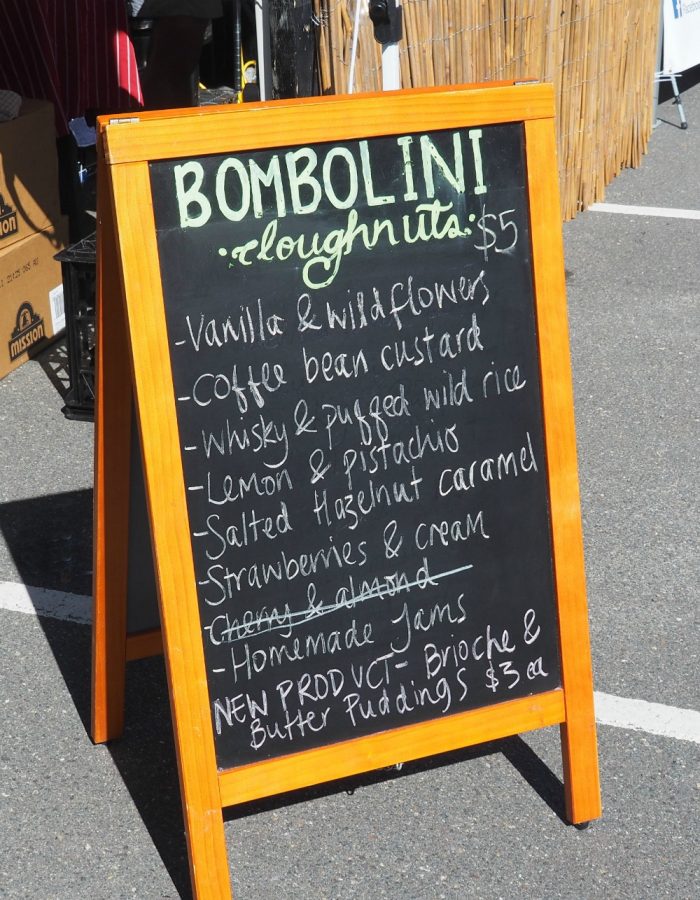 BOMBOLINI
doughnuts. $5
-Vanilla & wildflowers
-Coffee bean custard
-Whisky & puffed wild rice
-Lemon & pistachio
-Salted Hazelnut caramel
-Strawberries & cream
-Cherry & almond
-Homemade Jams
NEW PRODUCT- Brioche &
Butter Puddings $3 ea
MISSION